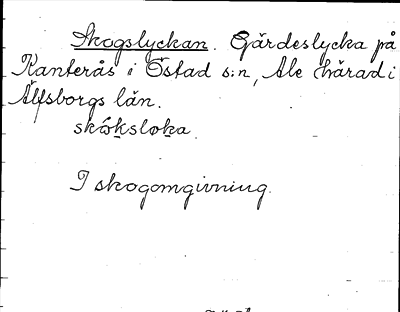 Skogslyckan. Gärdeslycka på
Kanterås i Östad s:n, Ale härad i
Älfsborgs län.
I skogomgivning.